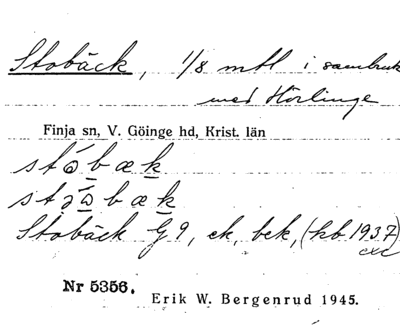 Stobäck, 1/8 mtl i sambruk
med Hörlinge
Finja sn, V. Göinge hd, Krist. län
Stobäck G 9, ek, bek, (kb 1937)
Nr 5356.
Erik W. Bergenrud 1945.